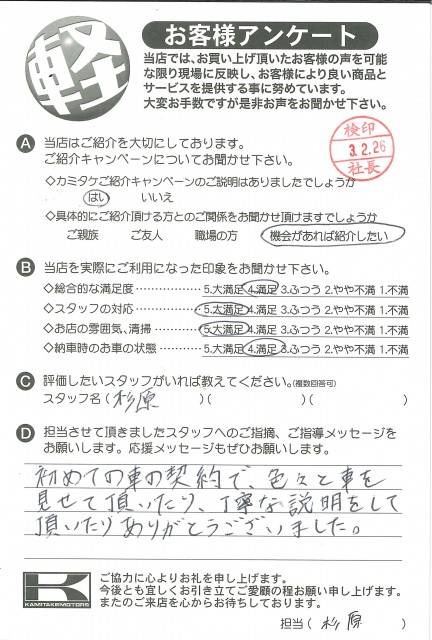 軽
お客様アンケート
当店では、お買い上げ頂いたお客様の声を可能
な限り現場に反映し、お客様により良い商品と
サービスを提供する事に努めています。
大変お手数ですが是非お声をお聞かせ下さい。
A 当店はご紹介を大切にしております。
ご紹介キャンペーンについてお聞かせ下さい。
検印
3.2.26
社長
◇カミタケご紹介キャンペーンのご説明はありましたでしょうか
はい いいえ
◇具体的にご紹介頂ける方とのご関係をお聞かせ頂けますでしょうか
ご親族 ご友人 職場の方 機会があれば紹介したい
B 当店を実際にご利用になった印象をお聞かせ下さい。
◇総合的な満足度 ・・・・・・・・・・・・・・ 5.大満足 4.満足 3.ふつう 2.やや不満 1.不満
◇スタッフの対応 ・・・・・・・・・・・・・・ 5.大満足 4.満足 3.ふつう 2.やや不満 1.不満
◇お店の雰囲気、清掃 ・・・・・・・・・・ 5.大満足 4.満足 3.ふつう 2.やや不満 1.不満
◇納車時のお車の状態 ・・・・・・・・・・ 5.大満足 4.満足 3.ふつう 2.やや不満 1.不満
C 評価したいスタッフがいれば教えてください。(複数回答可)
スタッフ名 ( 杉原 )( )( )
D 担当させて頂きましたスタッフへのご指摘、ご指導メッセージを
お願いします。応援メッセージもぜひお願いします。
初めての車の契約で、色々と車を
見せて頂いたり、丁寧な説明をして
頂いたりありがとうございました。
K
KAMITAKEMOTORS
ご協力に心よりお礼を申し上げます。
今後とも宜しくお引き立てご愛顧の程お願い申し上げます。
またのご来店を心からお待ちしております。
担当 ( 杉原 )